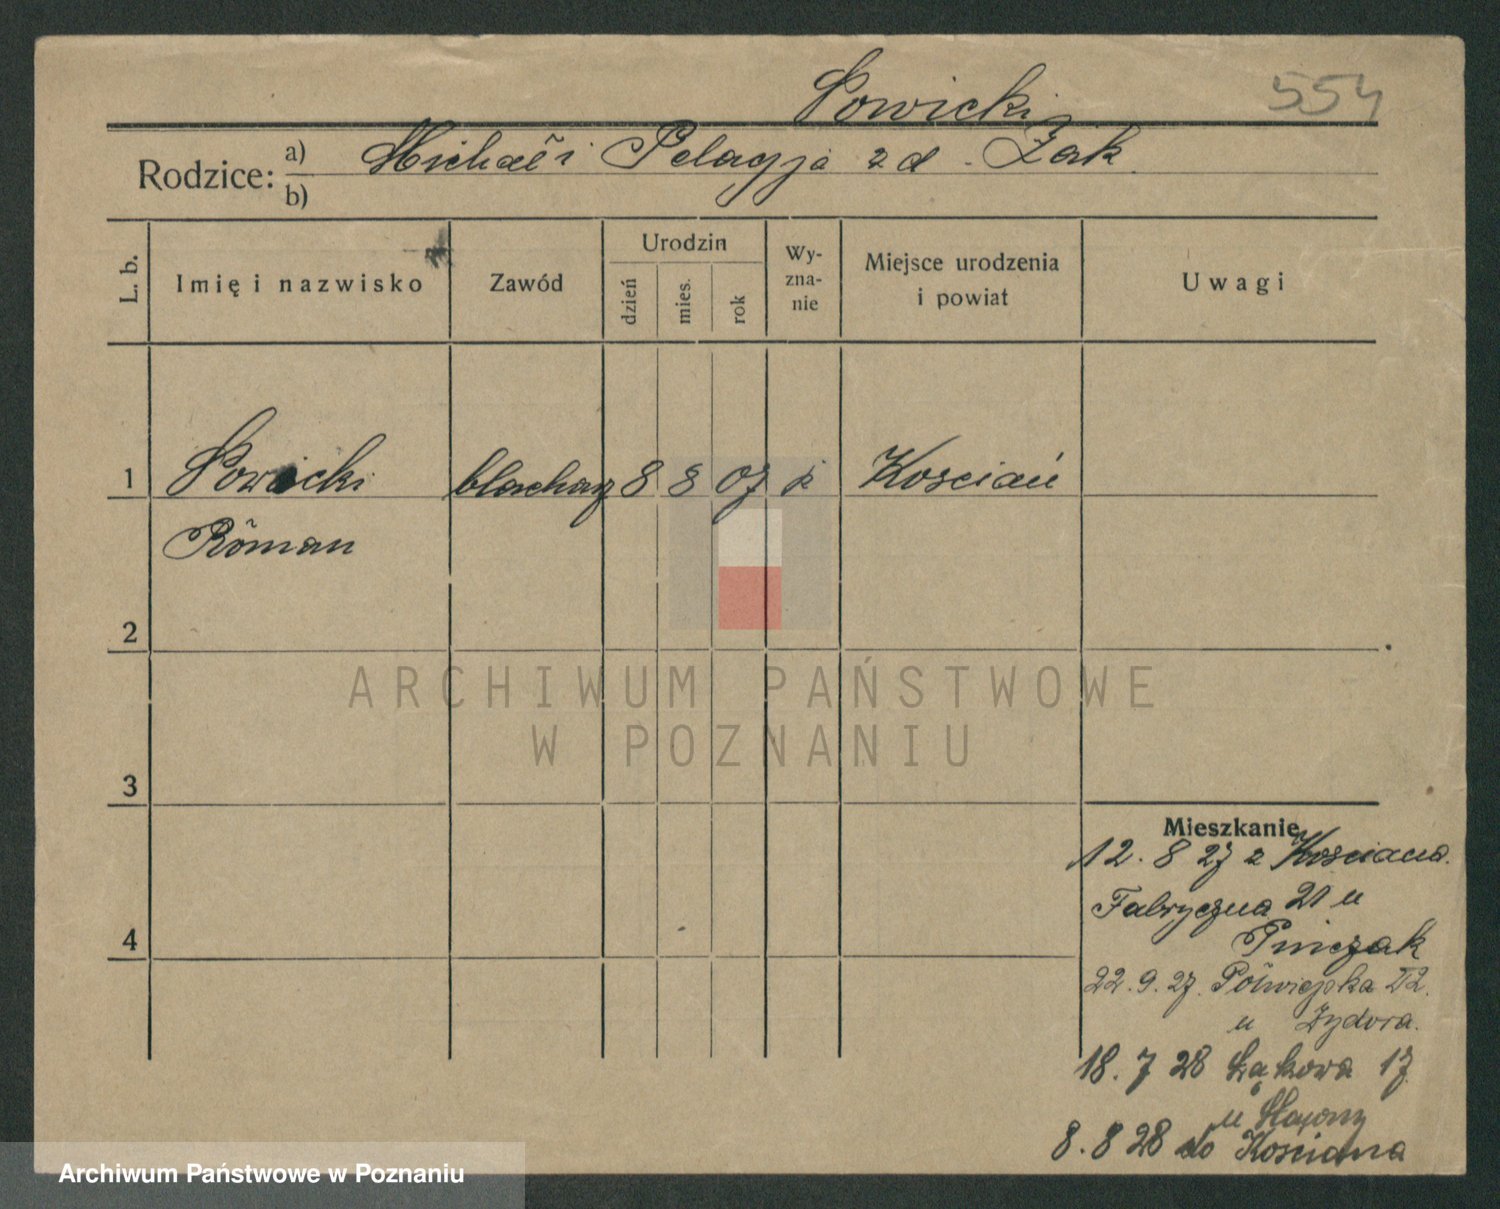 Sowicki 554
Rodzice: a) Michał i Pelagja z d. Żak
b)
L. b. Imię i nazwisko Zawód Urodzin dzień mies. rok Wy-zna-nie Miejsce urodzenia i powiat Uwagi
1 Sowicki blacharz 8 8 07 k Kościan
Roman
2
3
4
Mieszkanie
12. 8 27 z Kościana.
Fabryczna 21 u
Pinczak
22. 9. 27. Półwiejska
u
18. 7 28 Łąkowa 17
u
8. 8 28 do Kościana
ARCHIWUM PAŃSTWOWE
W POZNANIU
Archiwum Państwowe w Poznaniu